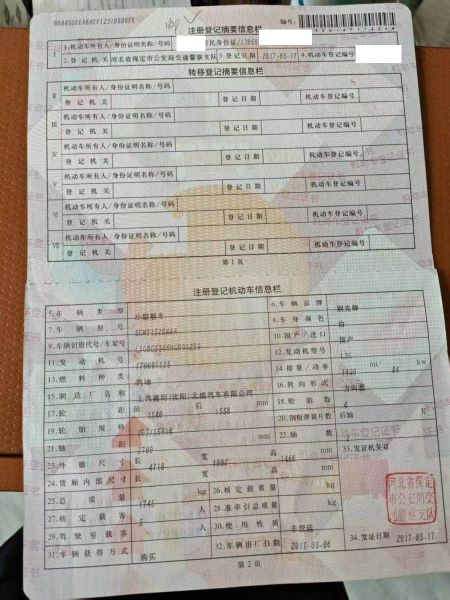 注册登记摘要信息栏
编号:
1.机动车所有人/身份证明名称/号码
2.登记机关 河北省保定市公安局交通警察支队 3.登记日期 2017-05-17 4.机动车登记编号
转移登记摘要信息栏
II 机动车所有人/身份证明名称/号码
登记机关 登记日期 机动车登记编号
III 机动车所有人/身份证明名称/号码
登记机关 登记日期 机动车登记编号
IV 机动车所有人/身份证明名称/号码
登记机关 登记日期 机动车登记编号
V 机动车所有人/身份证明名称/号码
登记机关 登记日期 机动车登记编号
VI 机动车所有人/身份证明名称/号码
登记机关 登记日期 机动车登记编号
VII 机动车所有人/身份证明名称/号码
登记机关 登记日期 机动车登记编号
第1页
注册登记机动车信息栏
5.车辆类型 小型轿车 6.车辆品牌 别克牌
7.车辆型号 8.车身颜色 白
9.车辆识别代号/车架号 10.国产/进口 国产
11.发动机号 12.发动机型号
13.燃料种类 汽油 14.排量/功率 ml/ 84 kw
15.制造厂名称 上汽通用(沈阳)北盛汽车有限公司 16.转向形式 方向盘
17.轮距 前 1540 后 1558 mm 18.轮胎数 4
19.轮胎规格 20.钢板弹簧片数 后轴
21.轴距 2700 mm 22.轴数
23.外廓尺寸 长 4718 宽 1807 高 1466 mm 33.发证机关章
24.货厢内部尺寸 长 宽 高 mm
25.总质量 1745 kg 26.核定载质量 kg
27.核定载客 5 人 28.准牵引总质量 kg
29.驾驶室载客 人 30.使用性质 非营运
31.车辆获得方式 购买 32.车辆出厂日期 2017-03-06 34.发证日期 2017-05-17
河北省保定
市公安局交
通警察支队
第2页